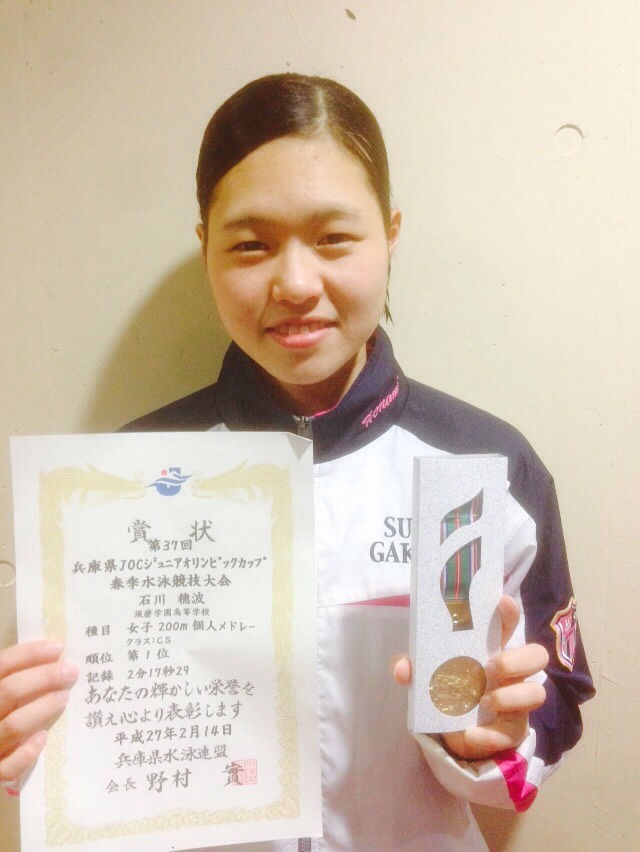 Honami
SU
GAK
賞状
第37回
兵庫県JOCジュニアオリンピックカップ
春季水泳競技大会
石川 穂波
須磨学園高等学校
種目 女子200m個人メドレー
クラス:CS
順位 第1位
記録 2分17秒29
あなたの輝かしい栄誉を
讃え心より表彰します
平成27年2月14日
兵庫県水泳連盟
会長 野村 實